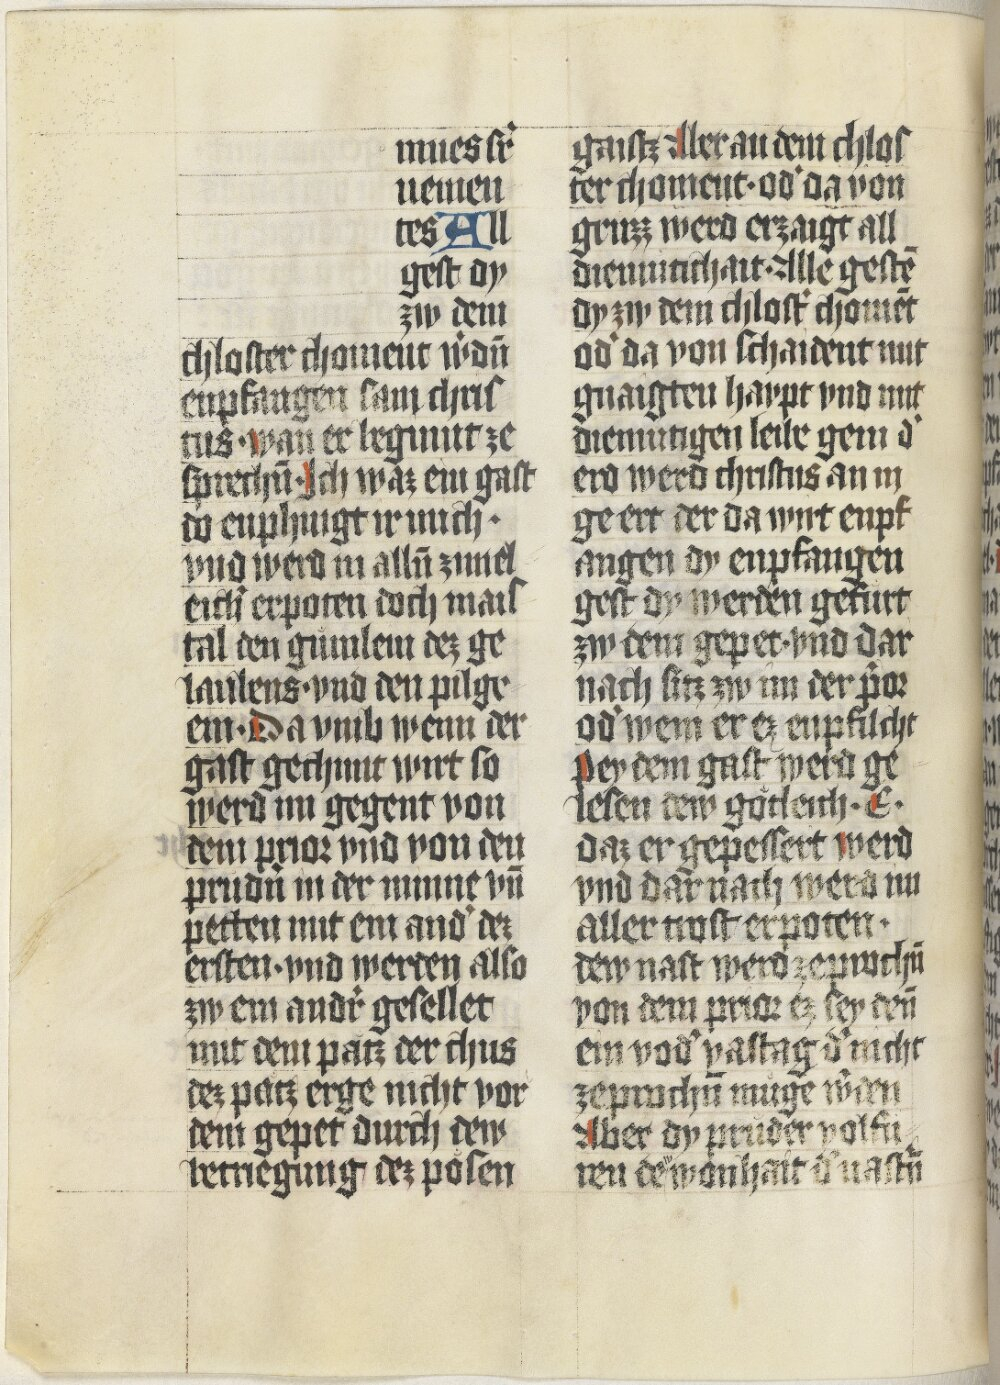 mues sr̄
nemen
tes All
gest dy
zw dem
chloster choment w̄dn̄
enpfangen sam chris
tus · wan er beginnt ze
sprechn̄ · Ich waz ein gast
do enphingt ir mich ·
vnd werd in alln̄ zimel
eich erpoten doch mais
tal den gimilem dez ge
laubens · vnd den pilgr
eim · Da vmb wenn der
gast gechunt wirt so
werd im gegent von
dem prior vnd von den
prudn̄ in der minne vn̄
petten mit ein and̾ dez
ersten · vnd werden also
zw ein andr̄ gesellet
mit dem patz der chus
dez patz erge nicht vor
dem gepet durch dew
betriegung dez pösen
gaistz Aller an dem chlos
ter choment · od̾ da von
gruzz werd erzaigt all
diemutichait · Alle gestē
dy zw dem chlost̾ chomēt
od̾ da von schaident mit
gnaigten havpt vnd mit
diemutigen leibe gein d̾
erd werd christus an in
ge ert der da wirt enpf
angen dy enpfangen
gest dy werden gefurt
zw dem gepet · vnd dar
nach sitz zw im der p̄or
od̾ wem er ez enpfilcht
Pey dem gast werd ge
lesen dew götleich · E ·
daz er gepessert werd
vnd dar nach werd im
aller trost erpoten ·
dew vast werd zeprochn̄
von dem prior ez sey den̄
ein vod̾ vastag d̾ nicht
zeprochn̄ muge w̄den
Aber dy pruder volfu
ren de wonhait d̾ uastn̄